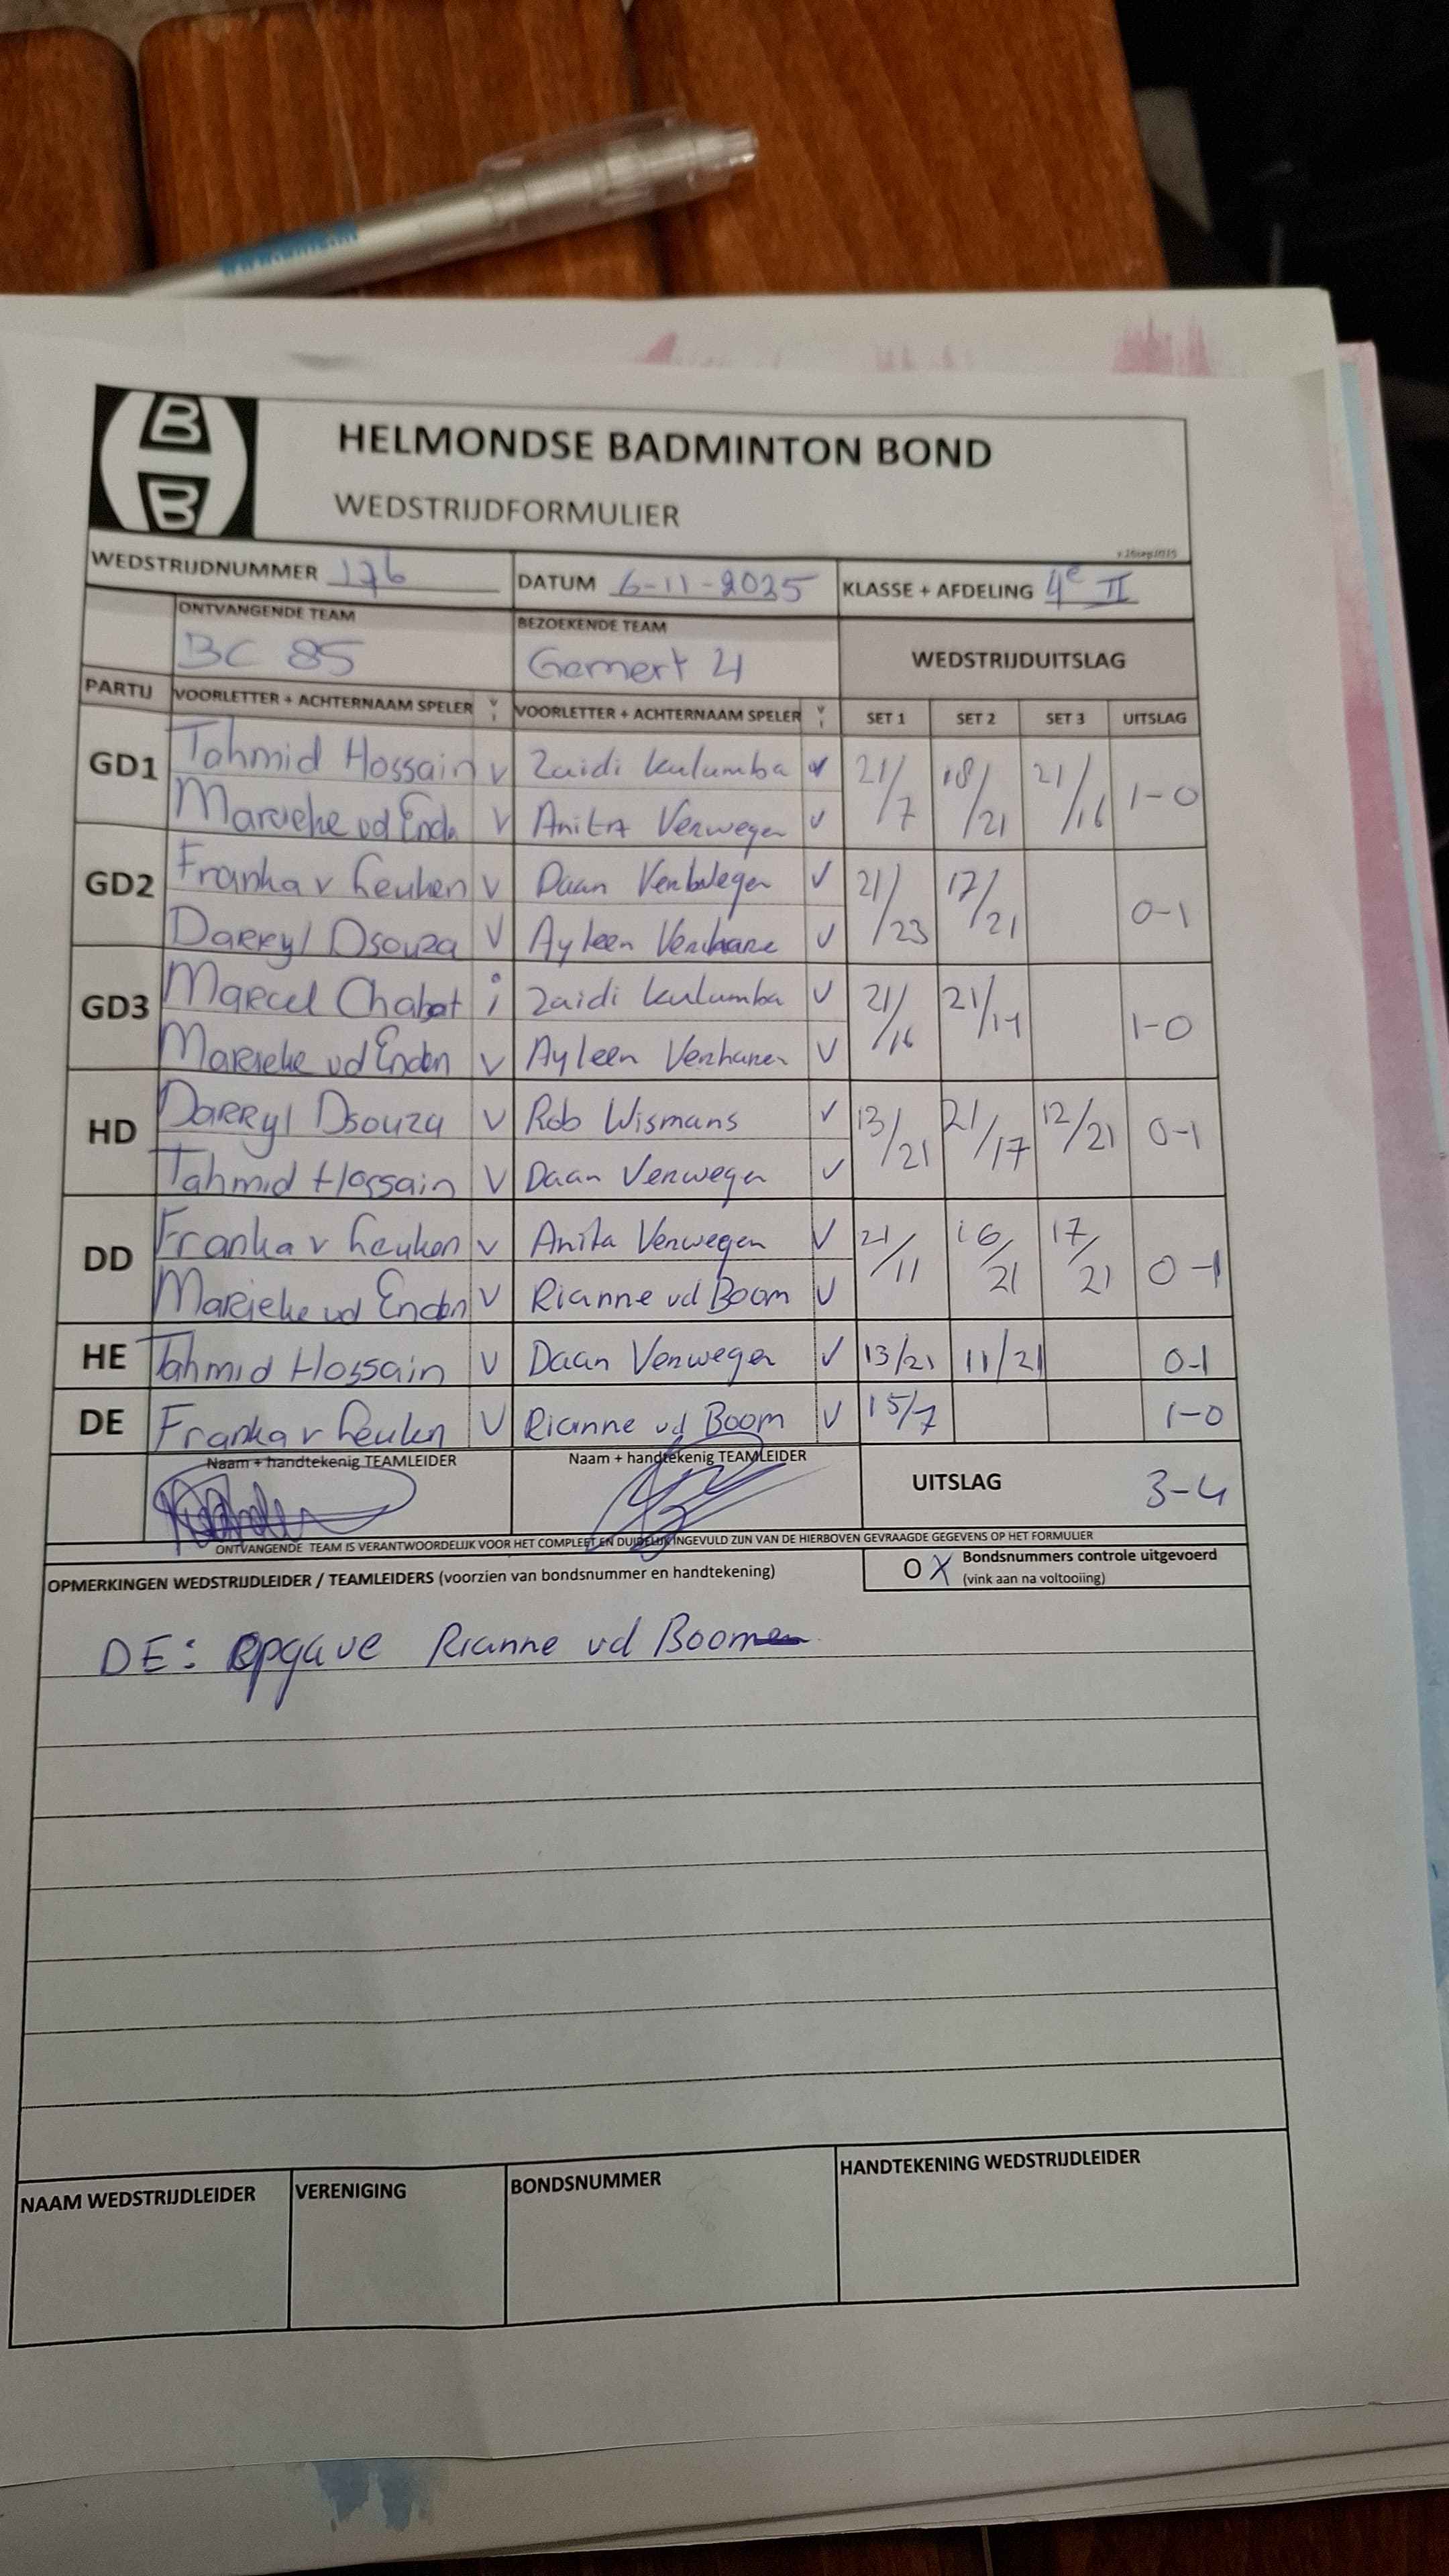 HELMONDSE BADMINTON BOND
WEDSTRIJDFORMULIER
WEDSTRIJDNUMMER 176 DATUM 6-11-2025 KLASSE + AFDELING 4e II
ONTVANGENDE TEAM BEZOEKENDE TEAM
BC 85 Gemert 4 WEDSTRIJDUITSLAG
PARTIJ VOORLETTER + ACHTERNAAM SPELER V I VOORLETTER + ACHTERNAAM SPELER V I SET 1 SET 2 SET 3 UITSLAG
GD1 Tahmid Hossain v Zaidi Kulumba v 21/7 18/21 21/16 1-0
Marieke vd Enden v Anita Verwegen v
GD2 Franka v Leuken v Daan Verwegen v 21/23 17/21 0-1
Darryl Dsouza v Ayleen Verharen v
GD3 Marcel Chabot i Zaidi Kulumba v 21/16 21/14 1-0
Marieke vd Enden v Ayleen Verharen v
HD Darryl Dsouza v Rob Wismans v 13/21 21/17 12/21 0-1
Tahmid Hossain v Daan Verwegen v
DD Franka v Leuken v Anita Verwegen v 21/11 16/21 17/21 0-1
Marieke vd Enden v Rianne vd Boom v
HE Tahmid Hossain v Daan Verwegen v 13/21 11/21 0-1
DE Franka v Leuken v Rianne vd Boom v 15/7 1-0
Naam + handtekenig TEAMLEIDER Naam + handtekenig TEAMLEIDER UITSLAG 3-4
ONTVANGENDE TEAM IS VERANTWOORDELIJK VOOR HET COMPLEET EN DUIDELIJK INGEVULD ZIJN VAN DE HIERBOVEN GEVRAAGDE GEGEVENS OP HET FORMULIER
OPMERKINGEN WEDSTRIJDLEIDER / TEAMLEIDERS (voorzien van bondsnummer en handtekening) O X Bondsnummers controle uitgevoerd
(vink aan na voltooiing)
DE: Opgave Rianne vd Boom
NAAM WEDSTRIJDLEIDER VERENIGING BONDSNUMMER HANDTEKENING WEDSTRIJDLEIDER